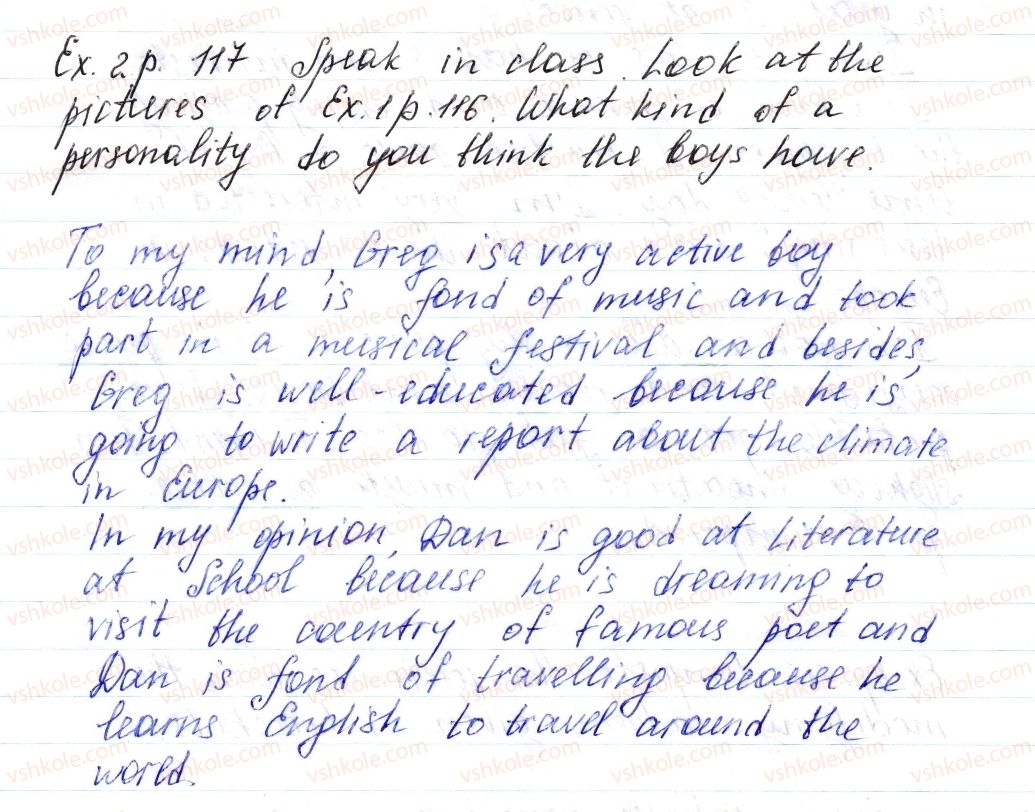 Ex. 2 p. 117 Speak in class. Look at the
pictures of Ex. 1 p. 116. What kind of a
personality do you think the boys have.
To my mind, Greg is a very active boy
because he is fond of music and took
part in a musical festival and besides,
Greg is well-educated because he is
going to write a report about the climate
in Europe.
In my opinion, Dan is good at Literature
at School because he is dreaming to
visit the country of famous poet and
Dan is fond of travelling because he
learns English to travel around the
world.